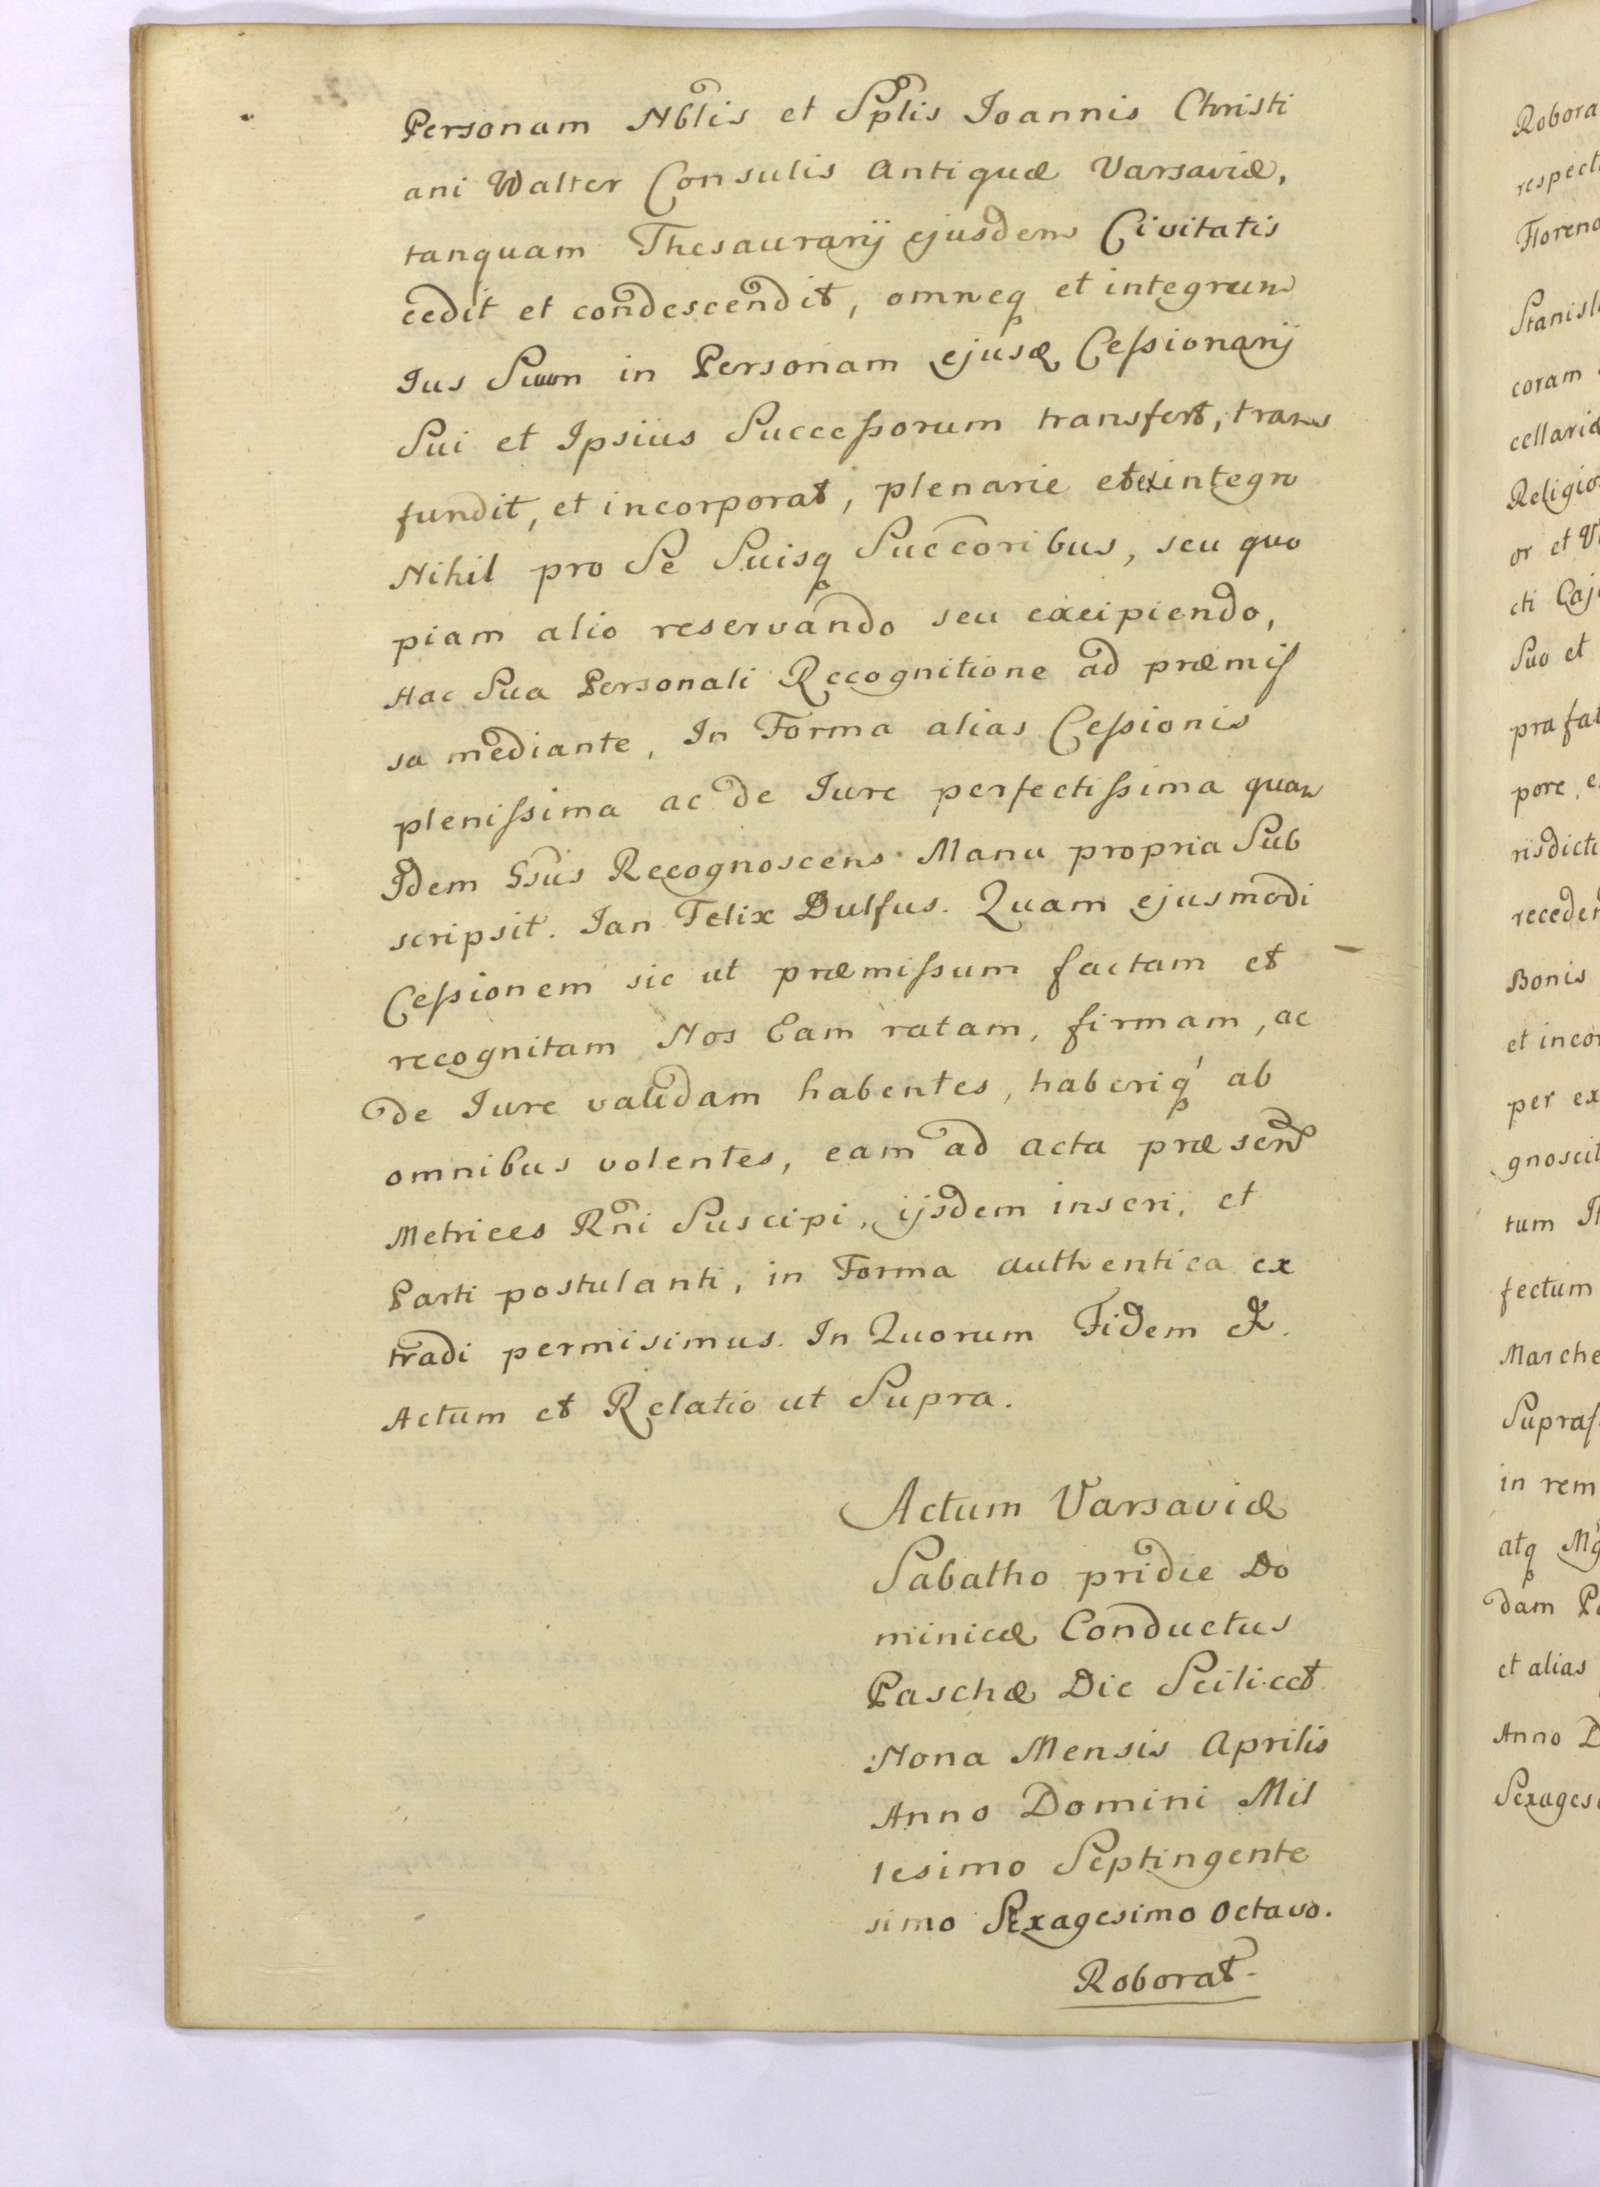 Personam Nblis et Splis Joannis Christi
ani Walter Consulis Antiquæ Varsaviæ,
tanquam Thesaurarij ejusdem Civitatis
cedit et condescendit, omneq et integrum
Jus Suum in Personam ejusd Cessionarij
Sui et Ipsius Successorum transfert, trans
fundit, et incorporat, plenarie et ex integro
Nihil pro Se Suisq Succoribus, seu quo
piam alio reservando seu excipiendo,
Hac Sua Personali Recognitione ad præmis
sa mediante, In Forma alias Cessionis
plenissima ac de Jure perfectissima quam
Idem Gsus Recognoscens Manu propria Sub
scripsit. Jan Felix Dulfus. Quam ejusmodi
Cessionem sic ut præmissum factam et
recognitam Nos Eam ratam, firmam, ac
de Jure validam habentes, haberiq ab
omnibus volentes, eam ad acta præsent
Metrices Rni Suscipi, ijsdem inseri, et
Parti postulanti, in Forma authentica ex
tradi permisimus. In Quorum Fidem &.
Actum et Relatio ut Supra.
Actum Varsaviæ
Sabatho pridie Do
minicæ Conductus
Paschæ Die Scilicet
Nona Mensis Aprilis
Anno Domini Mil
lesimo Septingente
simo Sexagesimo Octavo.
Roborat.
Robora
respect
Floreno
Stanisl
coram
cellariæ
Religio
or et
cti Caj
Suo et
præfat
pore, e
risdicti
receden
Bonis
et incor
per ex
gnoscit
tum
fectum
Marche
Supras
in rem
atq
dam
et alias
Anno D
Sexages